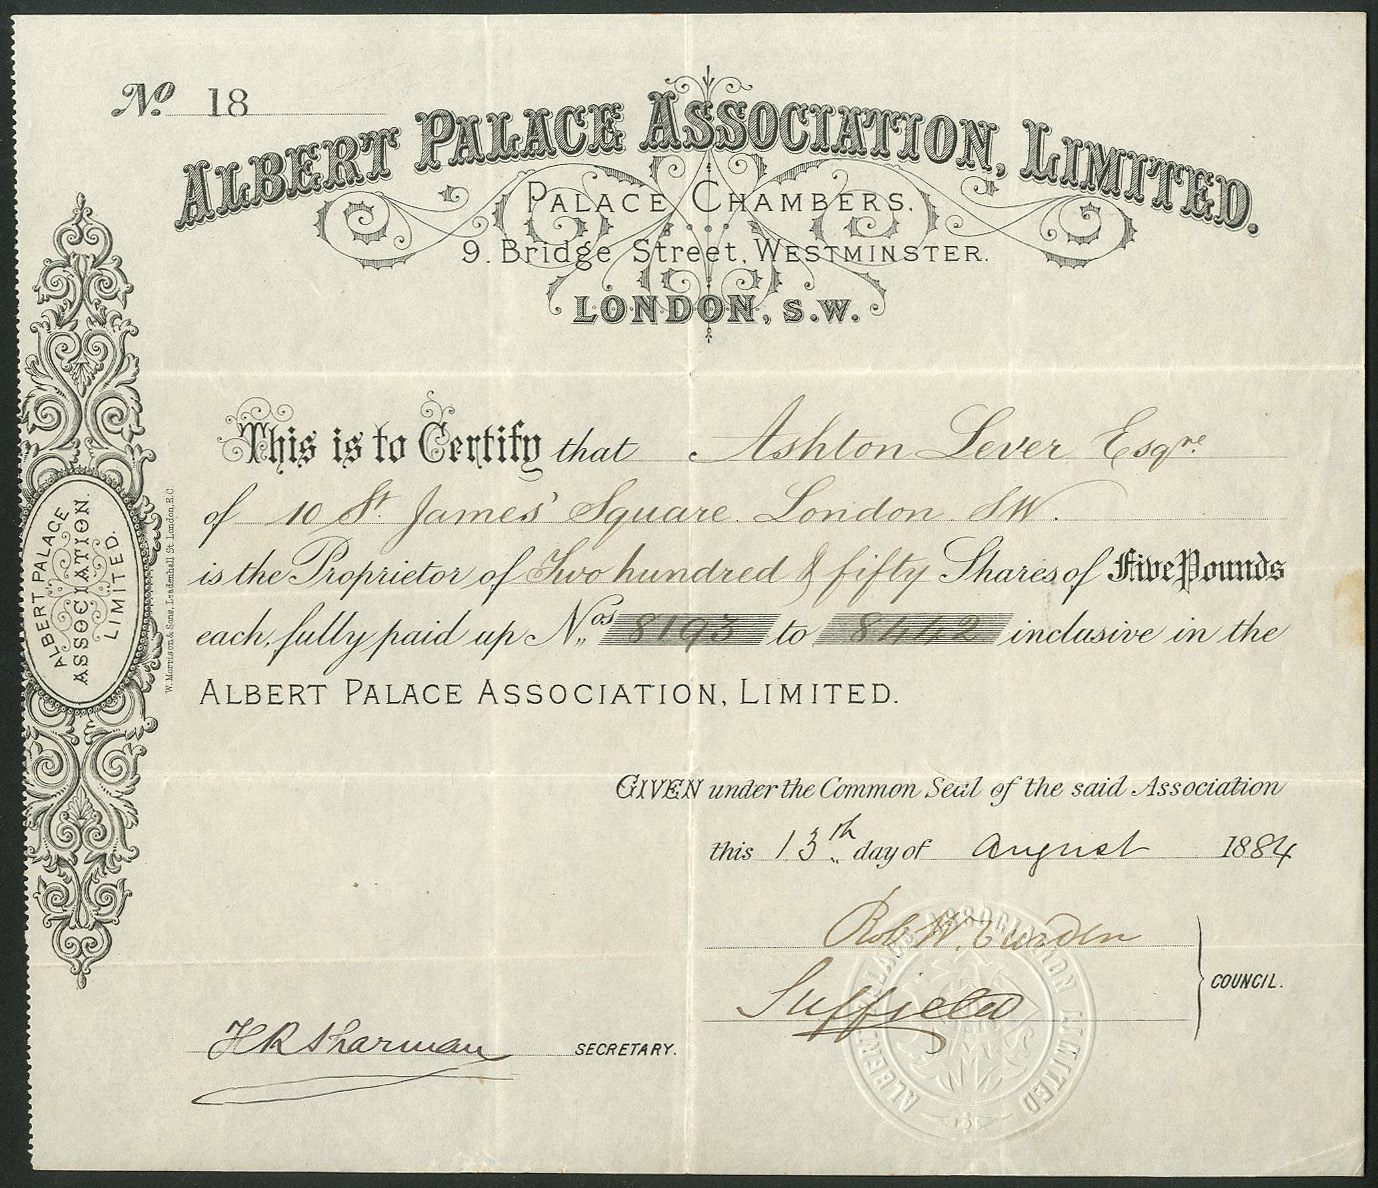 No. 18
ALBERT PALACE ASSOCIATION, LIMITED.
PALACE CHAMBERS.
9. Bridge Street, WESTMINSTER.
LONDON, S.W.
This is to Certify that Ashton Lever Esqre.
of 10 St. James' Square. London. SW.
is the Proprietor of Two hundred & fifty Shares of Five Pounds
each, fully paid up Nos. 8193 to 8442 inclusive in the
ALBERT PALACE ASSOCIATION, LIMITED.
GIVEN under the Common Seal of the said Association
this 13th day of August 1884
Rob W.
Suffield
COUNCIL.
H R Sharman SECRETARY.
ALBERT PALACE
ASSOCIATION.
LIMITED.
W. Morrison & Sons, Leadenhall St. London, E.C.
ALBERT PALACE ASSOCIATION LIMITED